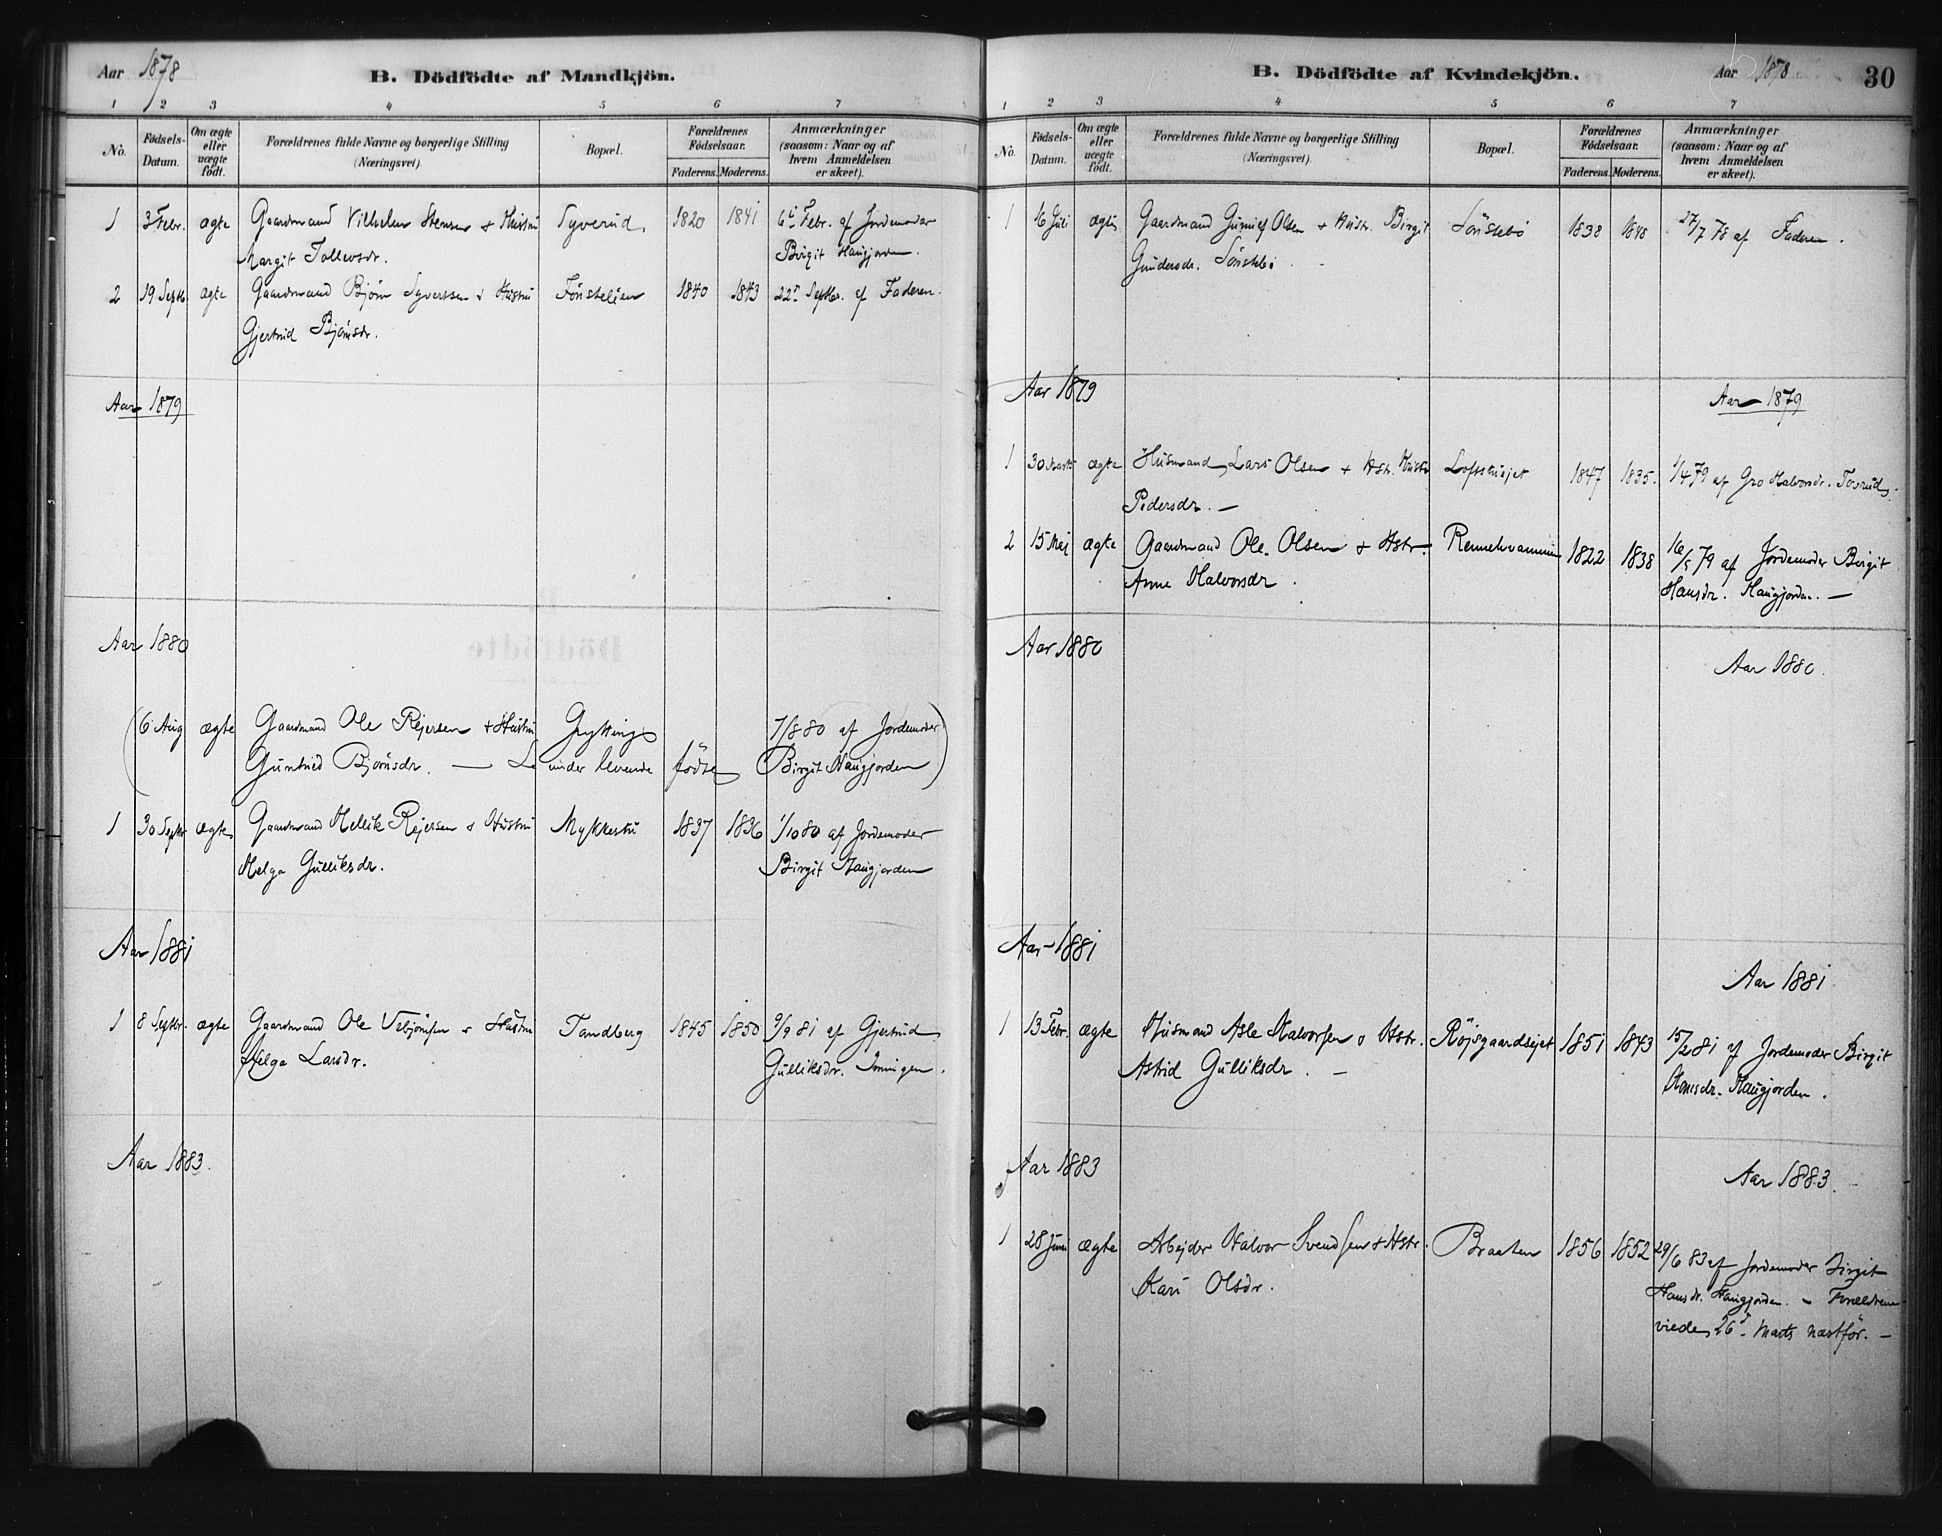 Aar 1878
B. Dödfödte af Mandkjön.
1 2 3 4 5 6 7
No.
Fødsels-Datum.
Om ægte eller uægte født.
Forældrenes fulde Navne og borgerlige Stilling
(Næringsvei).
Bopæl.
Forældrenes Fødselsaar.
Faderens. Moderens.
Anmærkninger
(saasom: Naar og af
hvem Anmeldelsen
er skeet).
1 3 Febr. ægte Gaardmand Vilhelm Stensen + Hustru Syverud 1820 1841 6t Febr. af Jordemoder
Margit Tollevsdr. Birgit Haugjorden.
2 19 Septb. ægte Gaardmand Bjørn Syversen + Hustru Fönstelien 1840 1843 22d Septbr. af Faderen.
Gjertrud Bjørnsdr.
Aar 1879
Aar 1880
(6 Aug ægte Gaardmand Ole Rejersen + Hustru 7/8 80 af Jordemoder
Guntrud Bjørnsdr. — under levende födte Birgit Haugjorden)
1 30 Septbr ægte Gaardmand Hellik Rejersen + Hustru Mykkestu 1837 1836 1/10 80 af Jordemoder
Helga Gulliksdr. Birgit Haugjorden
Aar 1881
1 8 Septbr. ægte Gaardmand Ole Vebjörnsen + Hustru Tandberg 1845 1850 9/9 81 af Gjertrud
Helga Larsdr. Gulliksdr.
Aar 1883.
B. Dödfödte af Kvindekjön.
Aar 1878
30
1 2 3 4 5 6 7
No.
Fødsels-Datum.
Om ægte eller uægte født.
Forældrenes fulde Navne og borgerlige Stilling
(Næringsvei).
Bopæl.
Forældrenes Fødselsaar.
Faderens. Moderens.
Anmærkninger
(saasom: Naar og af
hvem Anmeldelsen
er skeet).
1 16 Juli ægte Gaardmand Gunnulf Olsen + Hustr. Birgit Sönstebö 1838 1848 27/7 78 af Faderen.
Gundersdr. Sönstebö
Aar 1879 Aar 1879
1 30 Marts ægte Husmand Lars Olsen + Hstr. Loftstuejet 1847 1835. 1/4 79 af Gro Halvorsdr.
Pedersdr. —
2 15 Maj ægte Gaardmand Ole Olsen + Hstr. 1822 1838 16/5 79 af Jordemoder Birgit
Anne Halvorsdr. Hansdr. Haugjorden. —
Aar 1880 Aar 1880.
Aar 1881
Aar 1881
1 13 Febr. ægte Husmand Asle Halvorsen + Hstr. Röjsgaardsejet 1851 1843 15/2 81 af Jordemoder Birgit
Astrid Gulliksdr. — Hansdr. Haugjorden.
Aar 1883 Aar 1883.
1 28 Juni ægte Arbejder Halvor Svendsen + Hstr. Braaten 1856 1852 29/6 83 af Jordemoder Birgit
Kari Olsdr. Hansdr. Haugjorden. – Forældrene
viede 26d Marts næstför. —